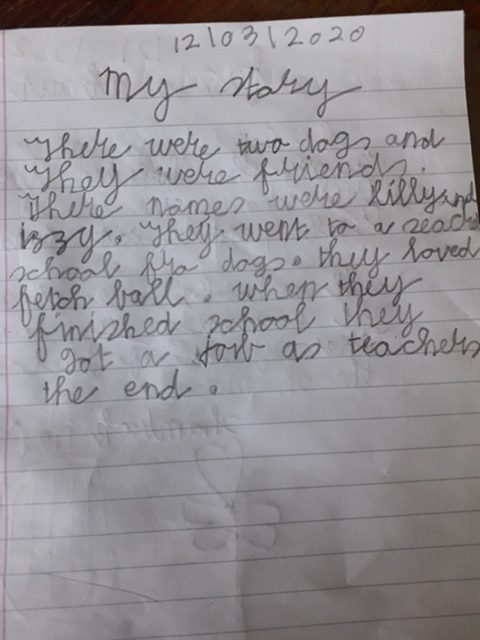 12/03/2020
My story
There were two dogs and
They were friends.
There names were Lilly and
izzy. They went to a
school fro dogs. they loved
fetch ball. when they
finished school they
got a as teachers
the end.